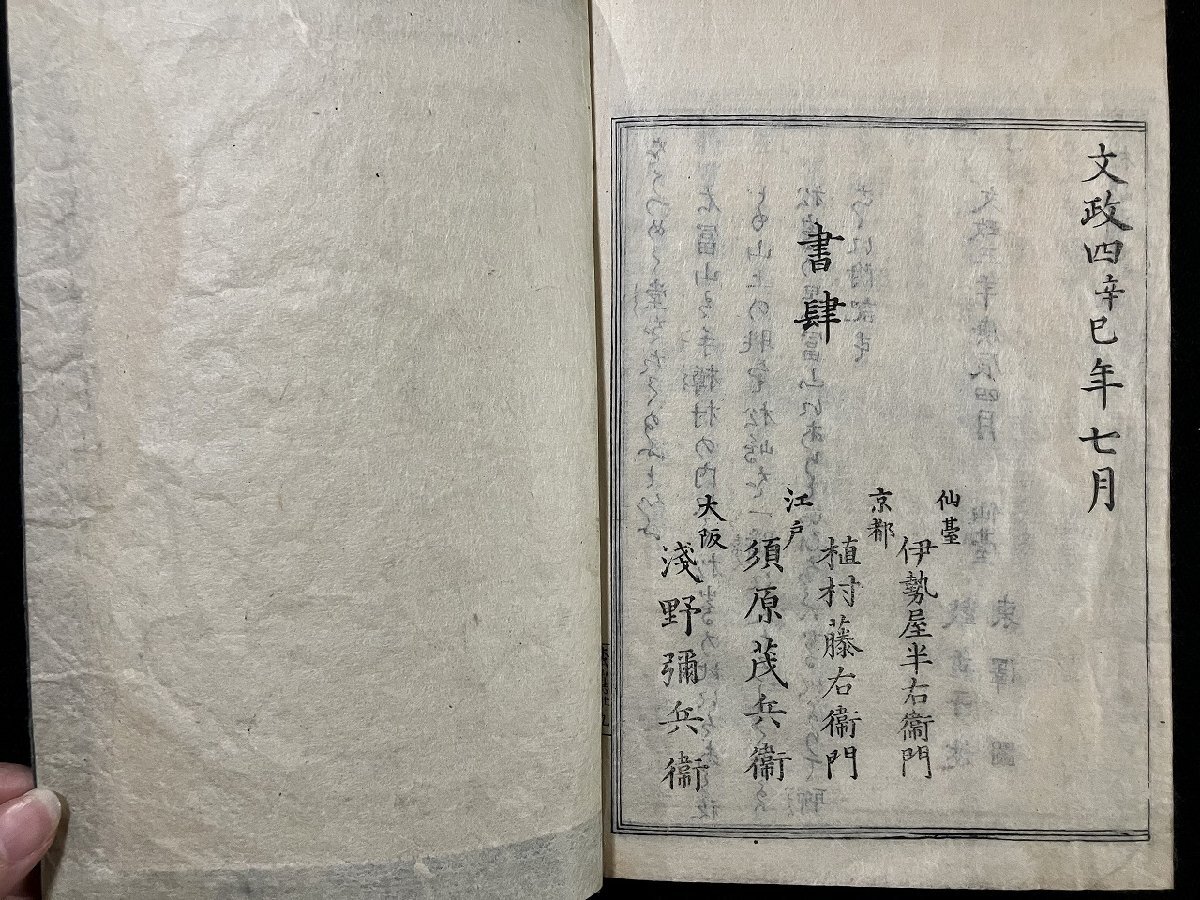 文政四辛巳年七月
書肆
仙䑓
伊勢屋半右衞門
京都
植村藤右衞門
江戸
須原茂兵衞
大阪
淺野彌兵衞